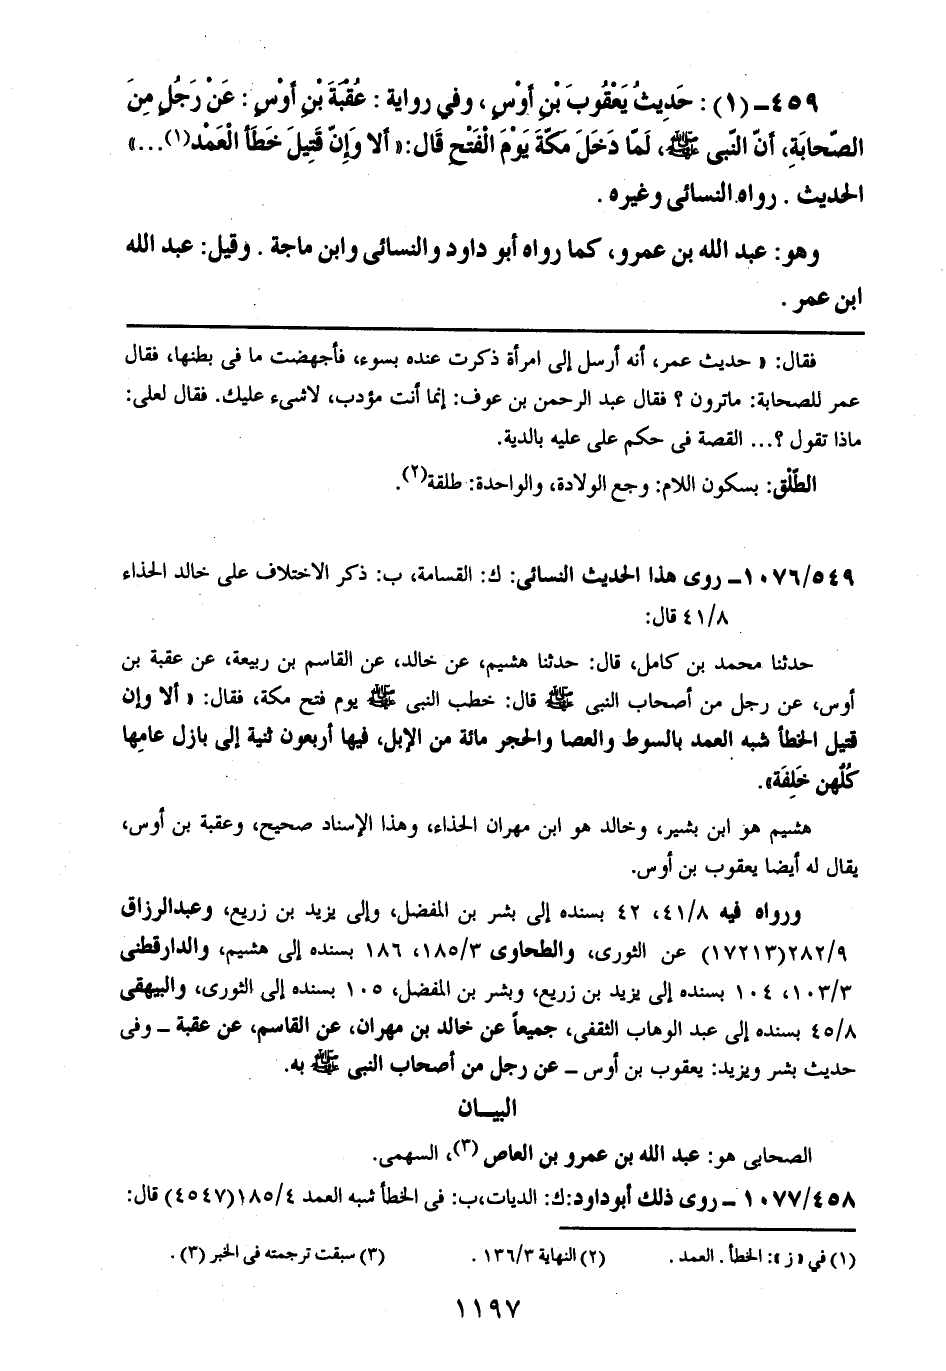 ٤٥٩ـ (١) : حَدِيثُ يَعْقُوبَ بْنِ أَوْسٍ ، وفي رواية : عُقْبَةَ بْنِ أَوْسٍ : عَنْ رَجُلٍ مِنَ
الصَّحابَةِ، أنّ النّبى ﷺ، لَمّا دَخَلَ مَكّةَ يَوْمَ الْفَتْحِ قَالَ:« ألا وَإِنّ قَتِيلَ خَطَأ الْعَمْد(١)...»
الحديث . رواه النسائى وغيره .
وهو: عبد الله بن عمرو، كما رواه أبو داود والنسائى وابن ماجة . وقيل: عبد الله
ابن عمر .
فقال: « حديث عمر، أنه أرسل إلى امرأة ذكرت عنده بسوء، فأجهضت ما فى بطنها، فقال
عمر للصحابة: ماترون ؟ فقال عبد الرحمن بن عوف: إنما أنت مؤدب، لاشىء عليك. فقال لعلى:
ماذا تقول ؟... القصة فى حكم على عليه بالدية.
الطّلْق: بسكون اللام: وجع الولادة، والواحدة: طلقة(٢).
١٠٧٦/٥٤٩ـ روى هذا الحديث النسائى: ك: القسامة، ب: ذكر الاختلاف على خالد الحذاء
٤١/٨ قال:
حدثنا محمد بن كامل، قال: حدثنا هشيم، عن خالد، عن القاسم بن ربيعة، عن عقبة بن
أوس، عن رجل من أصحاب النبى ﷺ قال: خطب النبى ﷺ يوم فتح مكة، فقال: « ألا وإن
قتيل الخطأ شبه العمد بالسوط والعصا والحجر مائة من الإبل، فيها أربعون ثنية إلى بازل عامِها
كُلّهن خَلِفَة».
هشيم هو ابن بشير، وخالد هو ابن مهران الحذاء، وهذا الإسناد صحيح، وعقبة بن أوس،
يقال له أيضا يعقوب بن أوس.
ورواه فيه ٤١/٨، ٤٢ بسنده إلى بشر بن المفضل، وإلى يزيد بن زريع، وعبدالرزاق
٢٨٢/٩(١٧٢١٣) عن الثورى، والطحاوى ١٨٥/٣، ١٨٦ بسنده إلى هشيم، والدارقطنى
١٠٣/٣، ١٠٤ بسنده إلى يزيد بن زريع، وبشر بن المفضل، ١٠٥ بسنده إلى الثورى، والبيهقى
٤٥/٨ بسنده إلى عبد الوهاب الثقفى، جميعاً عن خالد بن مهران، عن القاسم، عن عقبة ـ وفى
حديث بشر ويزيد: يعقوب بن أوس ـ عن رجل من أصحاب النبى ﷺ به.
البيـــان
الصحابى هو: عبد الله بن عمرو بن العاص (٣)، السهمى.
١٠٧٧/٤٥٨ ـ روى ذلك أبوداود:ك: الديات،ب: فى الخطأ شبه العمد ١٨٥/٤(٤٥٤٧) قال:
(١) في « ز »: الخطأ . العمد . (٢) النهاية ١٣٦/٣ . (٣) سبقت ترجمته فى الخبر (٣) .
١١٩٧